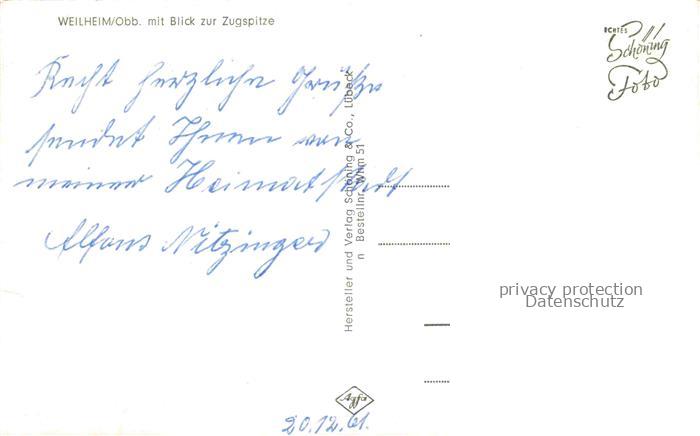 WEILHEIM/Obb. mit Blick zur Zugspitze
ECHTES
Schöning
Foto
Recht herzliche Grüße
sendet Ihnen von
meiner Heimatstadt
Alfons Nitzinger
Hersteller und Verlag Schöning & Co., Lübeck
n Bestellnr. Whm 51
privacy protection
Datenschutz
Agfa
20.12.61.